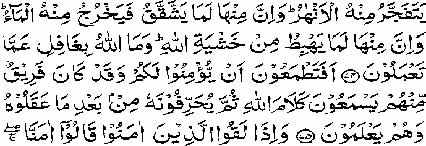 يَتَفَجَّرُ مِنْهُ الْاَنْهٰرُ ؕ وَاِنَّ مِنْهَا لَمَا يَشَّقَّقُ فَيَخْرُجُ مِنْهُ الْمَآءُ ؕ
وَاِنَّ مِنْهَا لَمَا يَهْبِطُ مِنْ خَشْيَةِ اللّٰهِ ؕ وَمَا اللّٰهُ بِغَافِلٍ عَمَّا
تَعْمَلُوْنَ ﴿۷۴﴾ اَفَتَطْمَعُوْنَ اَنْ يُّؤْمِنُوْا لَكُمْ وَقَدْ كَانَ فَرِيْقٌ
مِّنْهُمْ يَسْمَعُوْنَ كَلَامَ اللّٰهِ ثُمَّ يُحَرِّفُوْنَهٗ مِنْۢ بَعْدِ مَا عَقَلُوْهُ
وَهُمْ يَعْلَمُوْنَ ﴿۷۵﴾ وَاِذَا لَقُوا الَّذِيْنَ اٰمَنُوْا قَالُوْٓا اٰمَنَّا ۖۚ